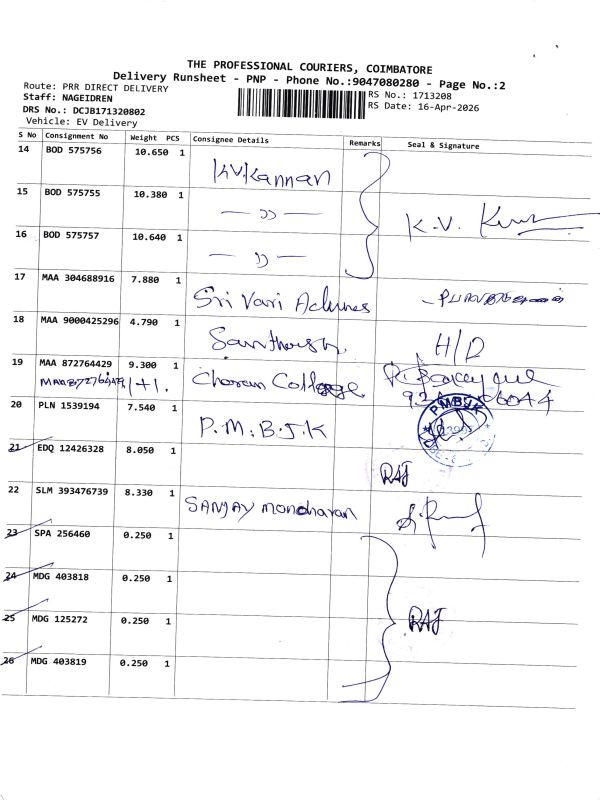 THE PROFESSIONAL COURIERS, COIMBATORE
Delivery Runsheet - PNP - Phone No.:9047080280 - Page No.:2
Route: PRR DIRECT DELIVERY
RS No.: 1713208
Staff: NAGEIDREN
RS Date: 16-Apr-2026
DRS No.: DCJB171320802
Vehicle: EV Delivery
S No Consignment No Weight PCS Consignee Details Remarks Seal & Signature
14 BOD 575756 10.650 1 K.V.Kannan
15 BOD 575755 10.380 1 — ,, —
K.V.
16 BOD 575757 10.640 1 — ,, —
17 MAA 304688916 7.880 1 Sri Vari
18 MAA 9000425296 4.790 1 Santhosh H/D
19 MAA 872764429 9.300 1 Charan College
1+1.
20 PLN 1539194 7.540 1 P.M.B.J.K
PMBJK
21 EDQ 12426328 8.050 1 RAJ
22 SLM 393476739 8.330 1 SANJAY manoharan
23 SPA 256460 0.250 1
24 MDG 403818 0.250 1
25 MDG 125272 0.250 1 RAJ
26 MDG 403819 0.250 1